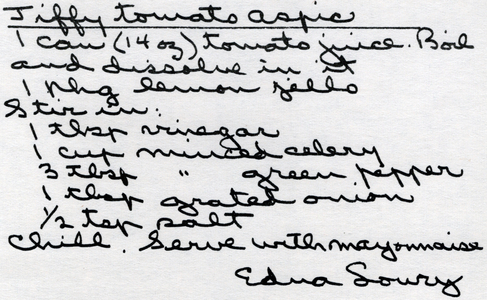 Jiffy tomato aspic
1 can (14 oz) tomato juice. Boil
and dissolve in it
1 pkg lemon jello
Stir in:
1 tbsp vinegar
1 cup minced celery
3 tbsp " green pepper
1 tbsp grated onion
1/2 tsp salt
Chill. Serve with mayonnaise
Edna Lowry